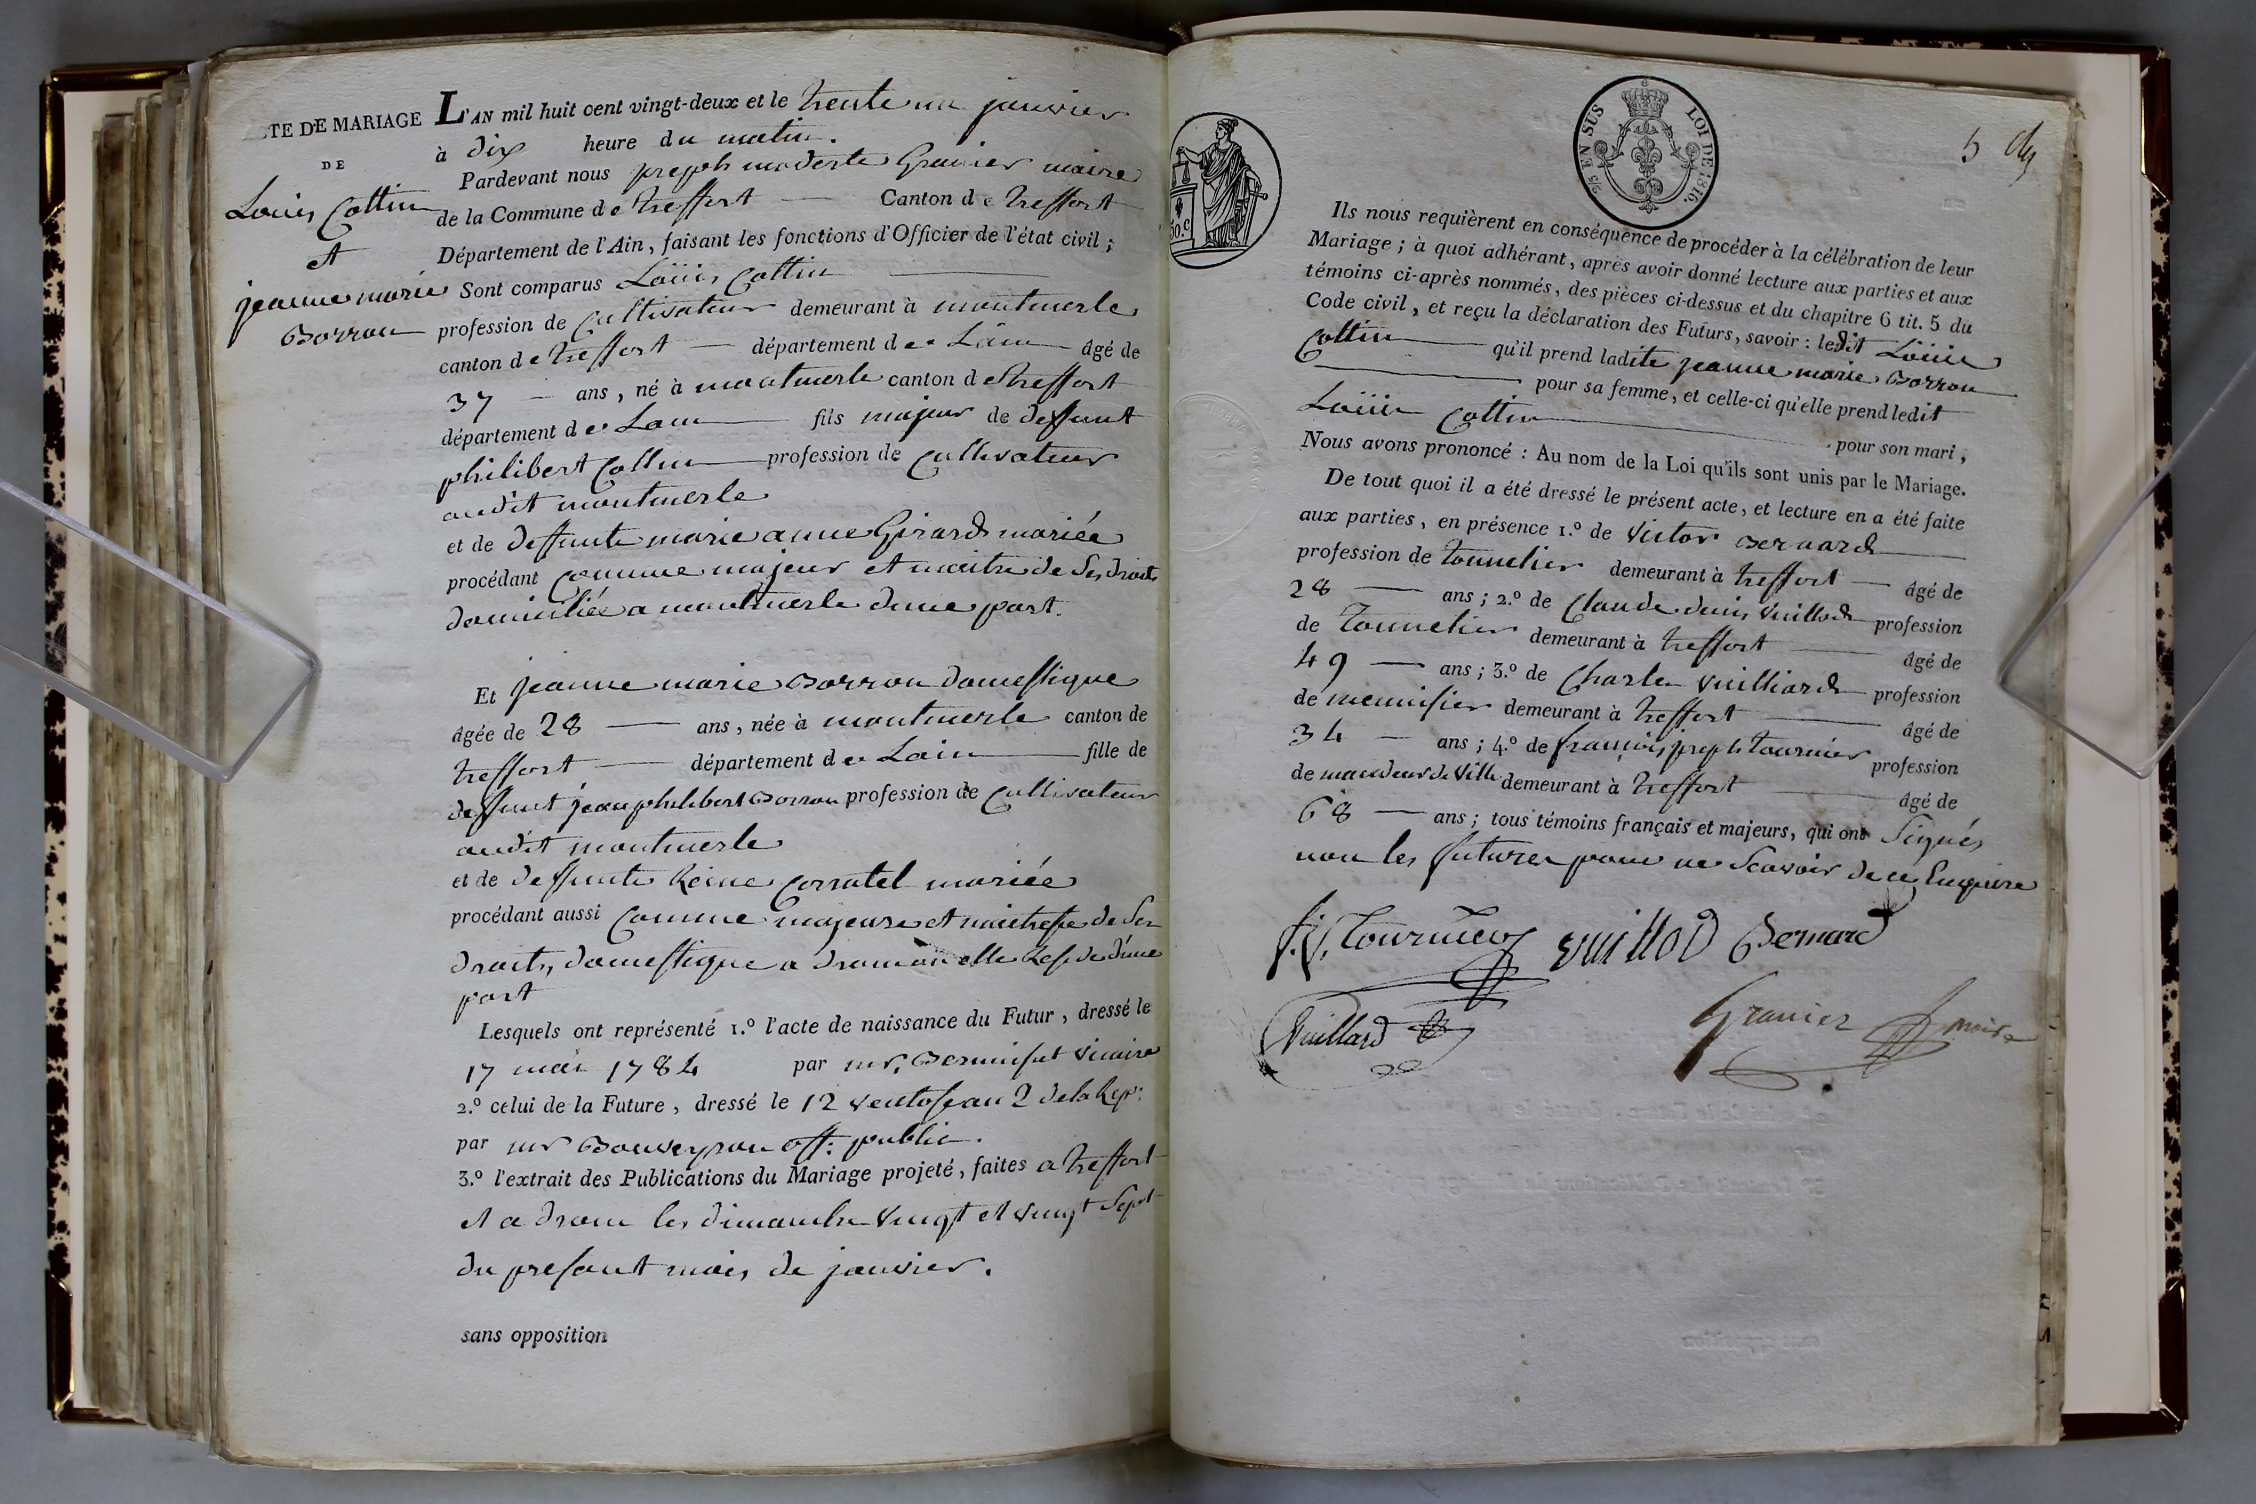 TE DE MARIAGE
DE
Louis Cottin
et
jeanne marie
Borron
L'AN mil huit cent vingt-deux et le trente un janvier
à dix heure du matin.
Pardevant nous joseph modeste Granier maire
de la Commune de treffort Canton de treffort
Département de l'Ain, faisant les fonctions d'Officier de l'état civil;
Sont comparus Loüis Cottin
profession de Cultivateur demeurant à montmerle
canton de treffort département de Lain âgé de
37 ans, né à montmerle canton de treffort
département de Lain fils majeur de deffunt
philibert Cottin profession de Cultivateur
audit montmerle
et de deffunte marie anne Girard mariée
procédant Comme majeur et maitre de Ses droits
domicilié a montmerle dune part.
Et jeanne marie Borron domestique
âgée de 28 ans, née à montmerle canton de
treffort département de Lain fille de
deffunt jean philibert Borron profession de Cultivateur
audit montmerle
et de deffunte Reine Corratel mariée
procédant aussi Comme majeure et maitresse de Ses
droits, domestique a drom ou elle Reside d'une
part
Lesquels ont représenté 1.º l'acte de naissance du Futur, dressé le
17 mai 1784 par mr. vicaire
2.º celui de la Future, dressé le 12 ventose an 2 de la Rep:
par mr Bouveyron off: public.
3.º l'extrait des Publications du Mariage projeté, faites a treffort
et a drom les dimanche vingt et vingt Sept
du present mois de janvier.
sans opposition
50.C
5/5 EN SUS LOI DE 1816.
5
Ils nous requièrent en conséquence de procéder à la célébration de leur
Mariage; à quoi adhérant, après avoir donné lecture aux parties et aux
témoins ci-après nommés, des pièces ci-dessus et du chapitre 6 tit. 5 du
Code civil, et reçu la déclaration des Futurs, savoir: ledit Loüis
Cottin qu'il prend ladite jeanne marie Borron
pour sa femme, et celle-ci qu'elle prend ledit
Loüis Cottin pour son mari,
Nous avons prononcé: Au nom de la Loi qu'ils sont unis par le Mariage.
De tout quoi il a été dressé le présent acte, et lecture en a été faite
aux parties, en présence 1.º de Victor Bernard
profession de tonnelier demeurant à treffort âgé de
28 ans; 2.º de Claude denis Vuillod profession
de tonnelier demeurant à treffort âgé de
49 ans; 3.º de Charles Vuilliard profession
de menuisier demeurant à treffort âgé de
34 ans; 4.º de françois joseph tournier profession
de mandeur de Ville demeurant à treffort âgé de
68 ans; tous témoins français et majeurs, qui ont Signés
non les futures pour ne Scavoir de ce Enquire
f. j. Tournier Vuillod Bernard
Vuillard Granier maire